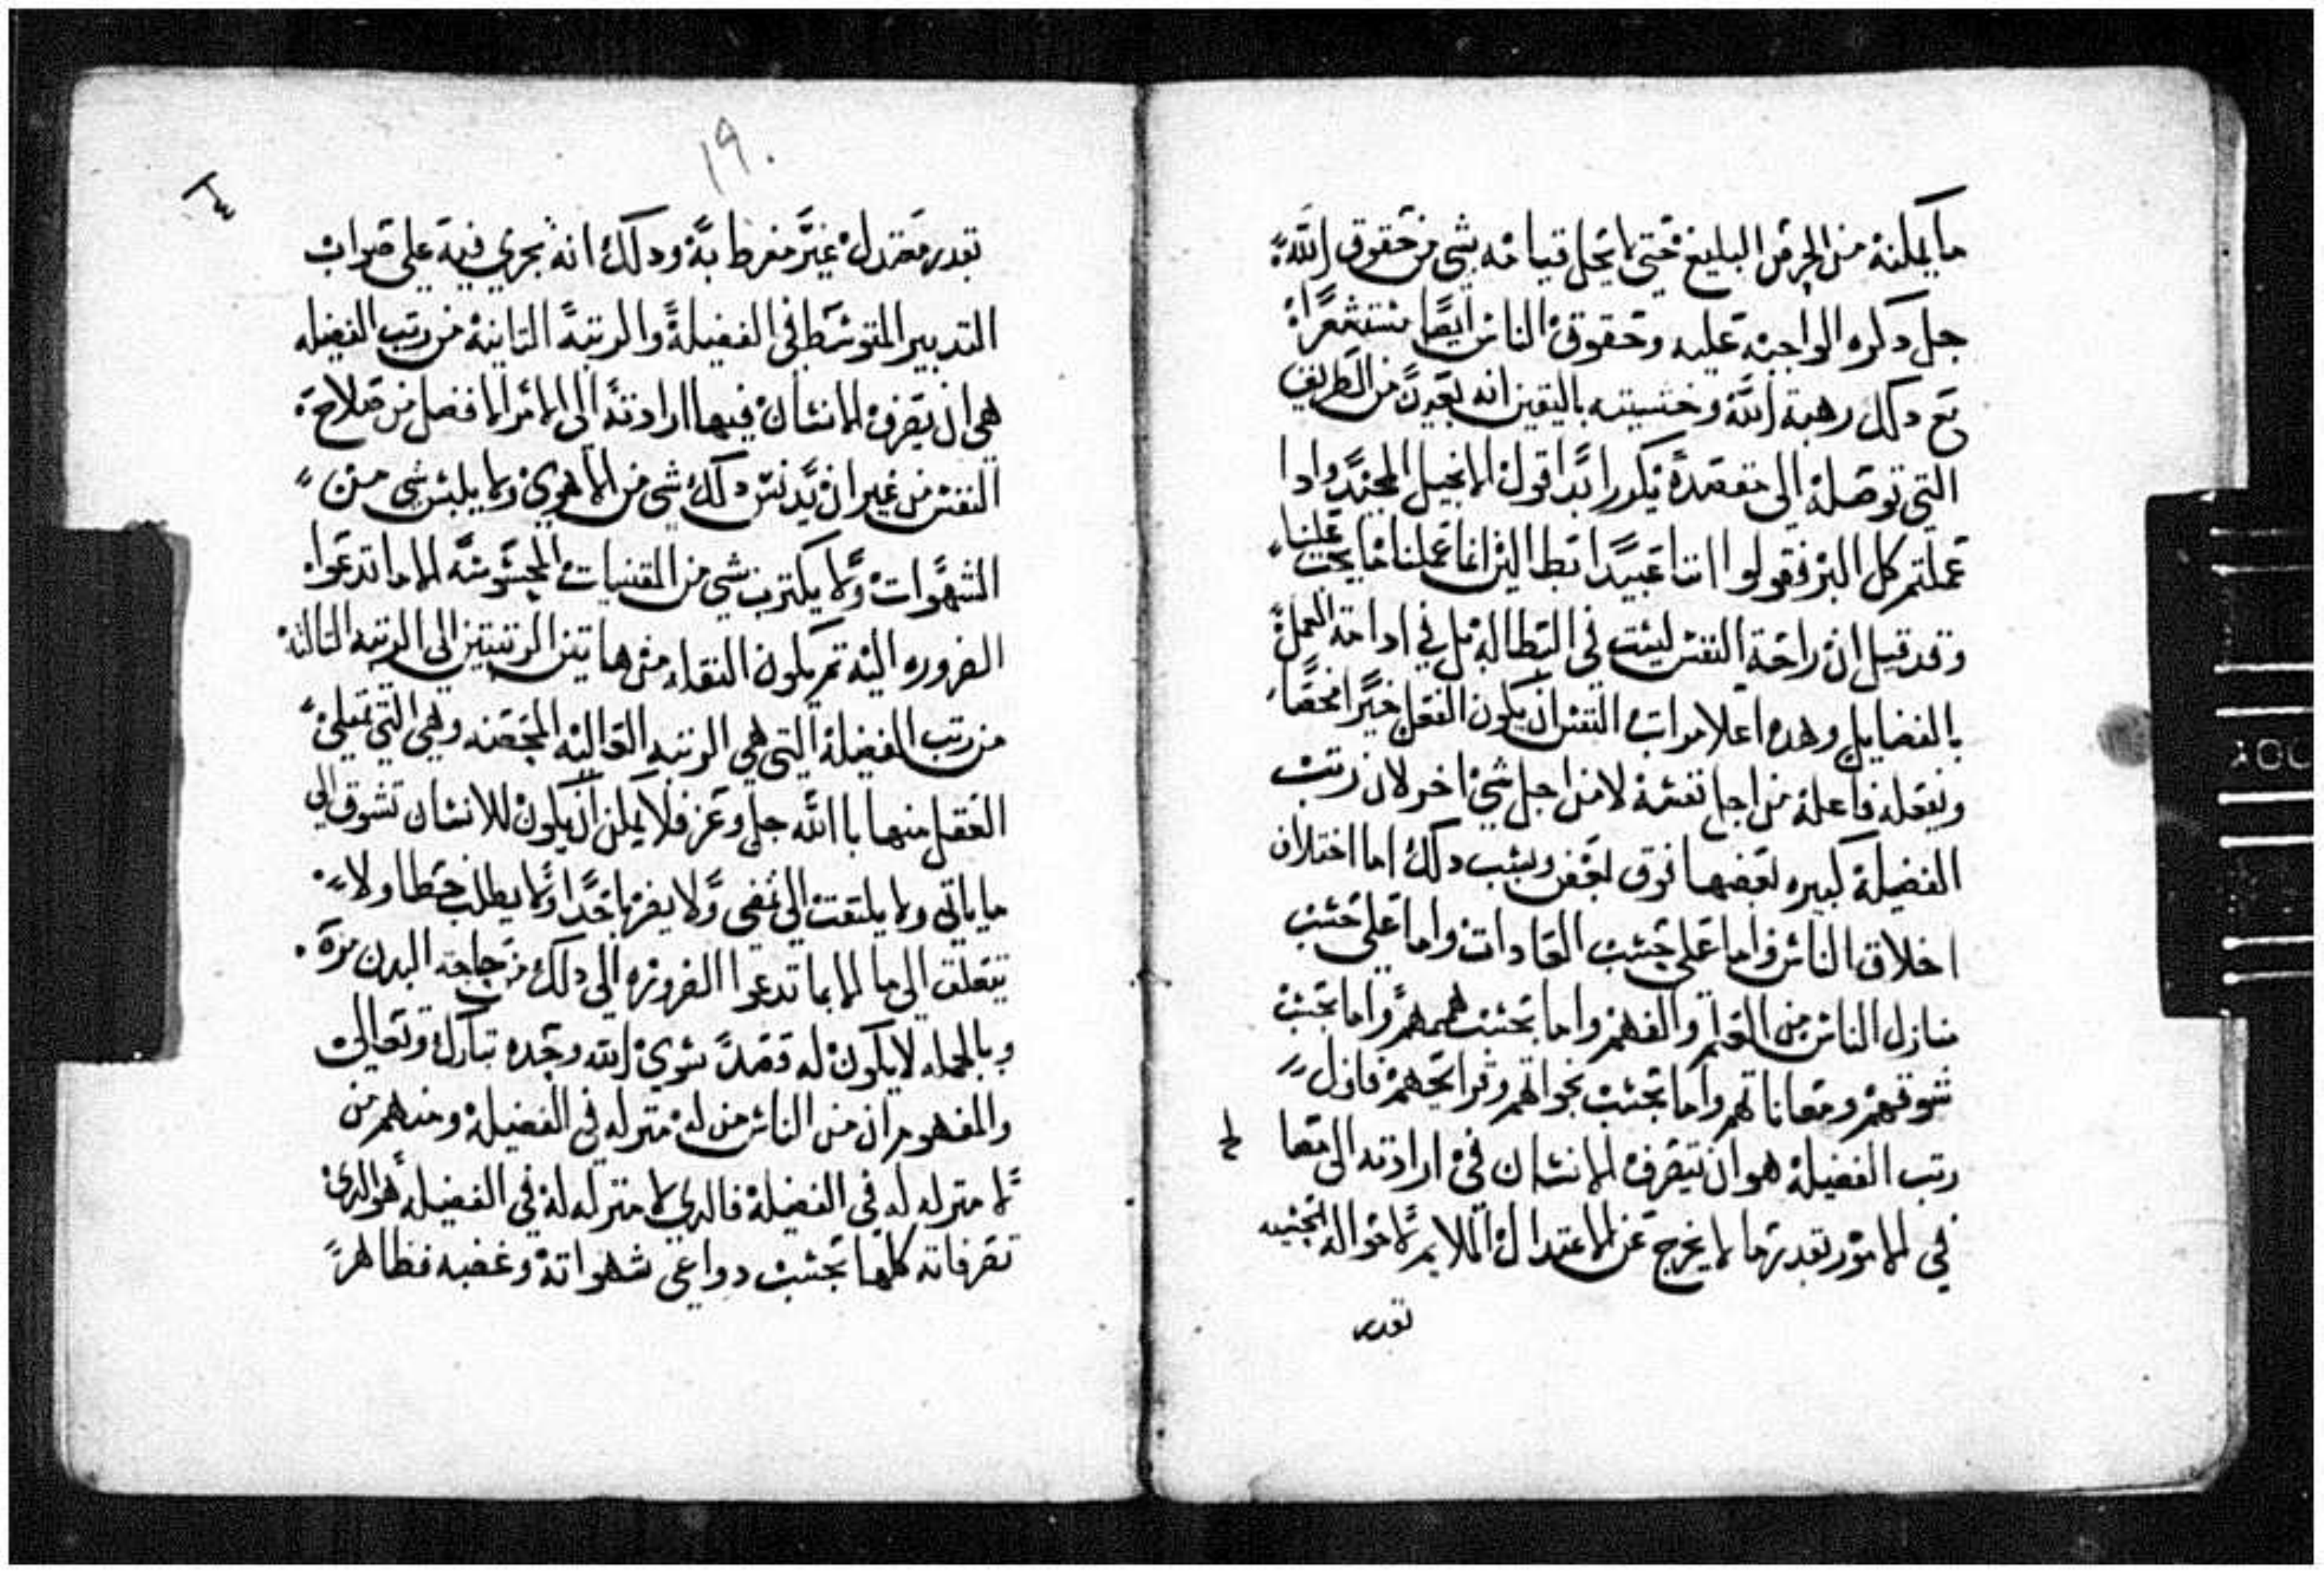 ما يمكنه من الحرص البليغ حتى لا يخل قيامه بشي من حقوق الله
جل ذكره الواجبه عليه وحقوق الناس ايضا مستشعرا
مع دلك رهبة الله وخشيته باليقين انه بعيدً من الطريق
التي توصله الى مقصده يكور ابدا قول الانجيل المجيد وادا
عملتم كل البر فقولوا اننا عبيدا بطالين انما عملنا ما يجب علينا
وقد قيل ان راحة النفس ليست في البطاله بل في ادامة العمل
بالفضايل وهده اعلا مراتب النفس ان يكون الفعل خيرا محضا
ويفعله فاعله من اجل نفسه لا من اجل شي اخر لان رتب
الفضيله كبيره بعضها فوق بعض وسبب دلك اما اختلاف
اخلاق الناس واما على حسب العادات واما على حسب
منازل الناس من العلم والفهم واما بحسب هممهم واما بحسب
شوقهم ومعاناتهم واما بحسب نحواتهم وقرايحهم فاول
رتب الفضيله هو ان يتصرف الانسان في ارادته الى مصا
لح
في الامور بقدر ما لا يخرج عن الاعتدال الملايم لاحواله الحسيه
تقدر
١٩٠
تقدر معتدل غير مفرط به ودلك انه يجري فيه على صواب
التدبير المتوسط في الفضيلة والرتبة التانية من رتب الفضيله
هي ان يصرف الانسان فيها ارادته الى الامر الافضل من صلاح
النفس من غير ان يدنس دلك شي من الاهوي ولا يلبس شي من
الشهوات ولا يكترت بشي من المقتنيات المحسوسه الا ما تدعوا
الضروره اليه تم يكون النقله من هاتين الرتبتين الى الرتبه التالته
من رتب الفضيلة التي هي الرتبه العاليه المحضه وهي التي تمتلي
العقل منها باالله جل وعز فلا يمكن ان يكون للانسان تشوق الى
ما ياتي ولا يلتفت الي مضي ولا يضرها حدا ولا يطلب حظا ولا
تتعلق الى ما الا بما تدعوا الضروره الى دلك من حاجة البدن مرة
وبالجمله لا يكون له قصدً سوي الله وحده تبارك وتعالى
والمفهوم ان من الناس من له منزله في الفضيلة ومنهم من
لا منزله له في الفضيلة فالدي لا منزله له في الفضيله هو الدي
تصرفاته كلها بحسب دواعي شهواته وغضبه فظاهرً